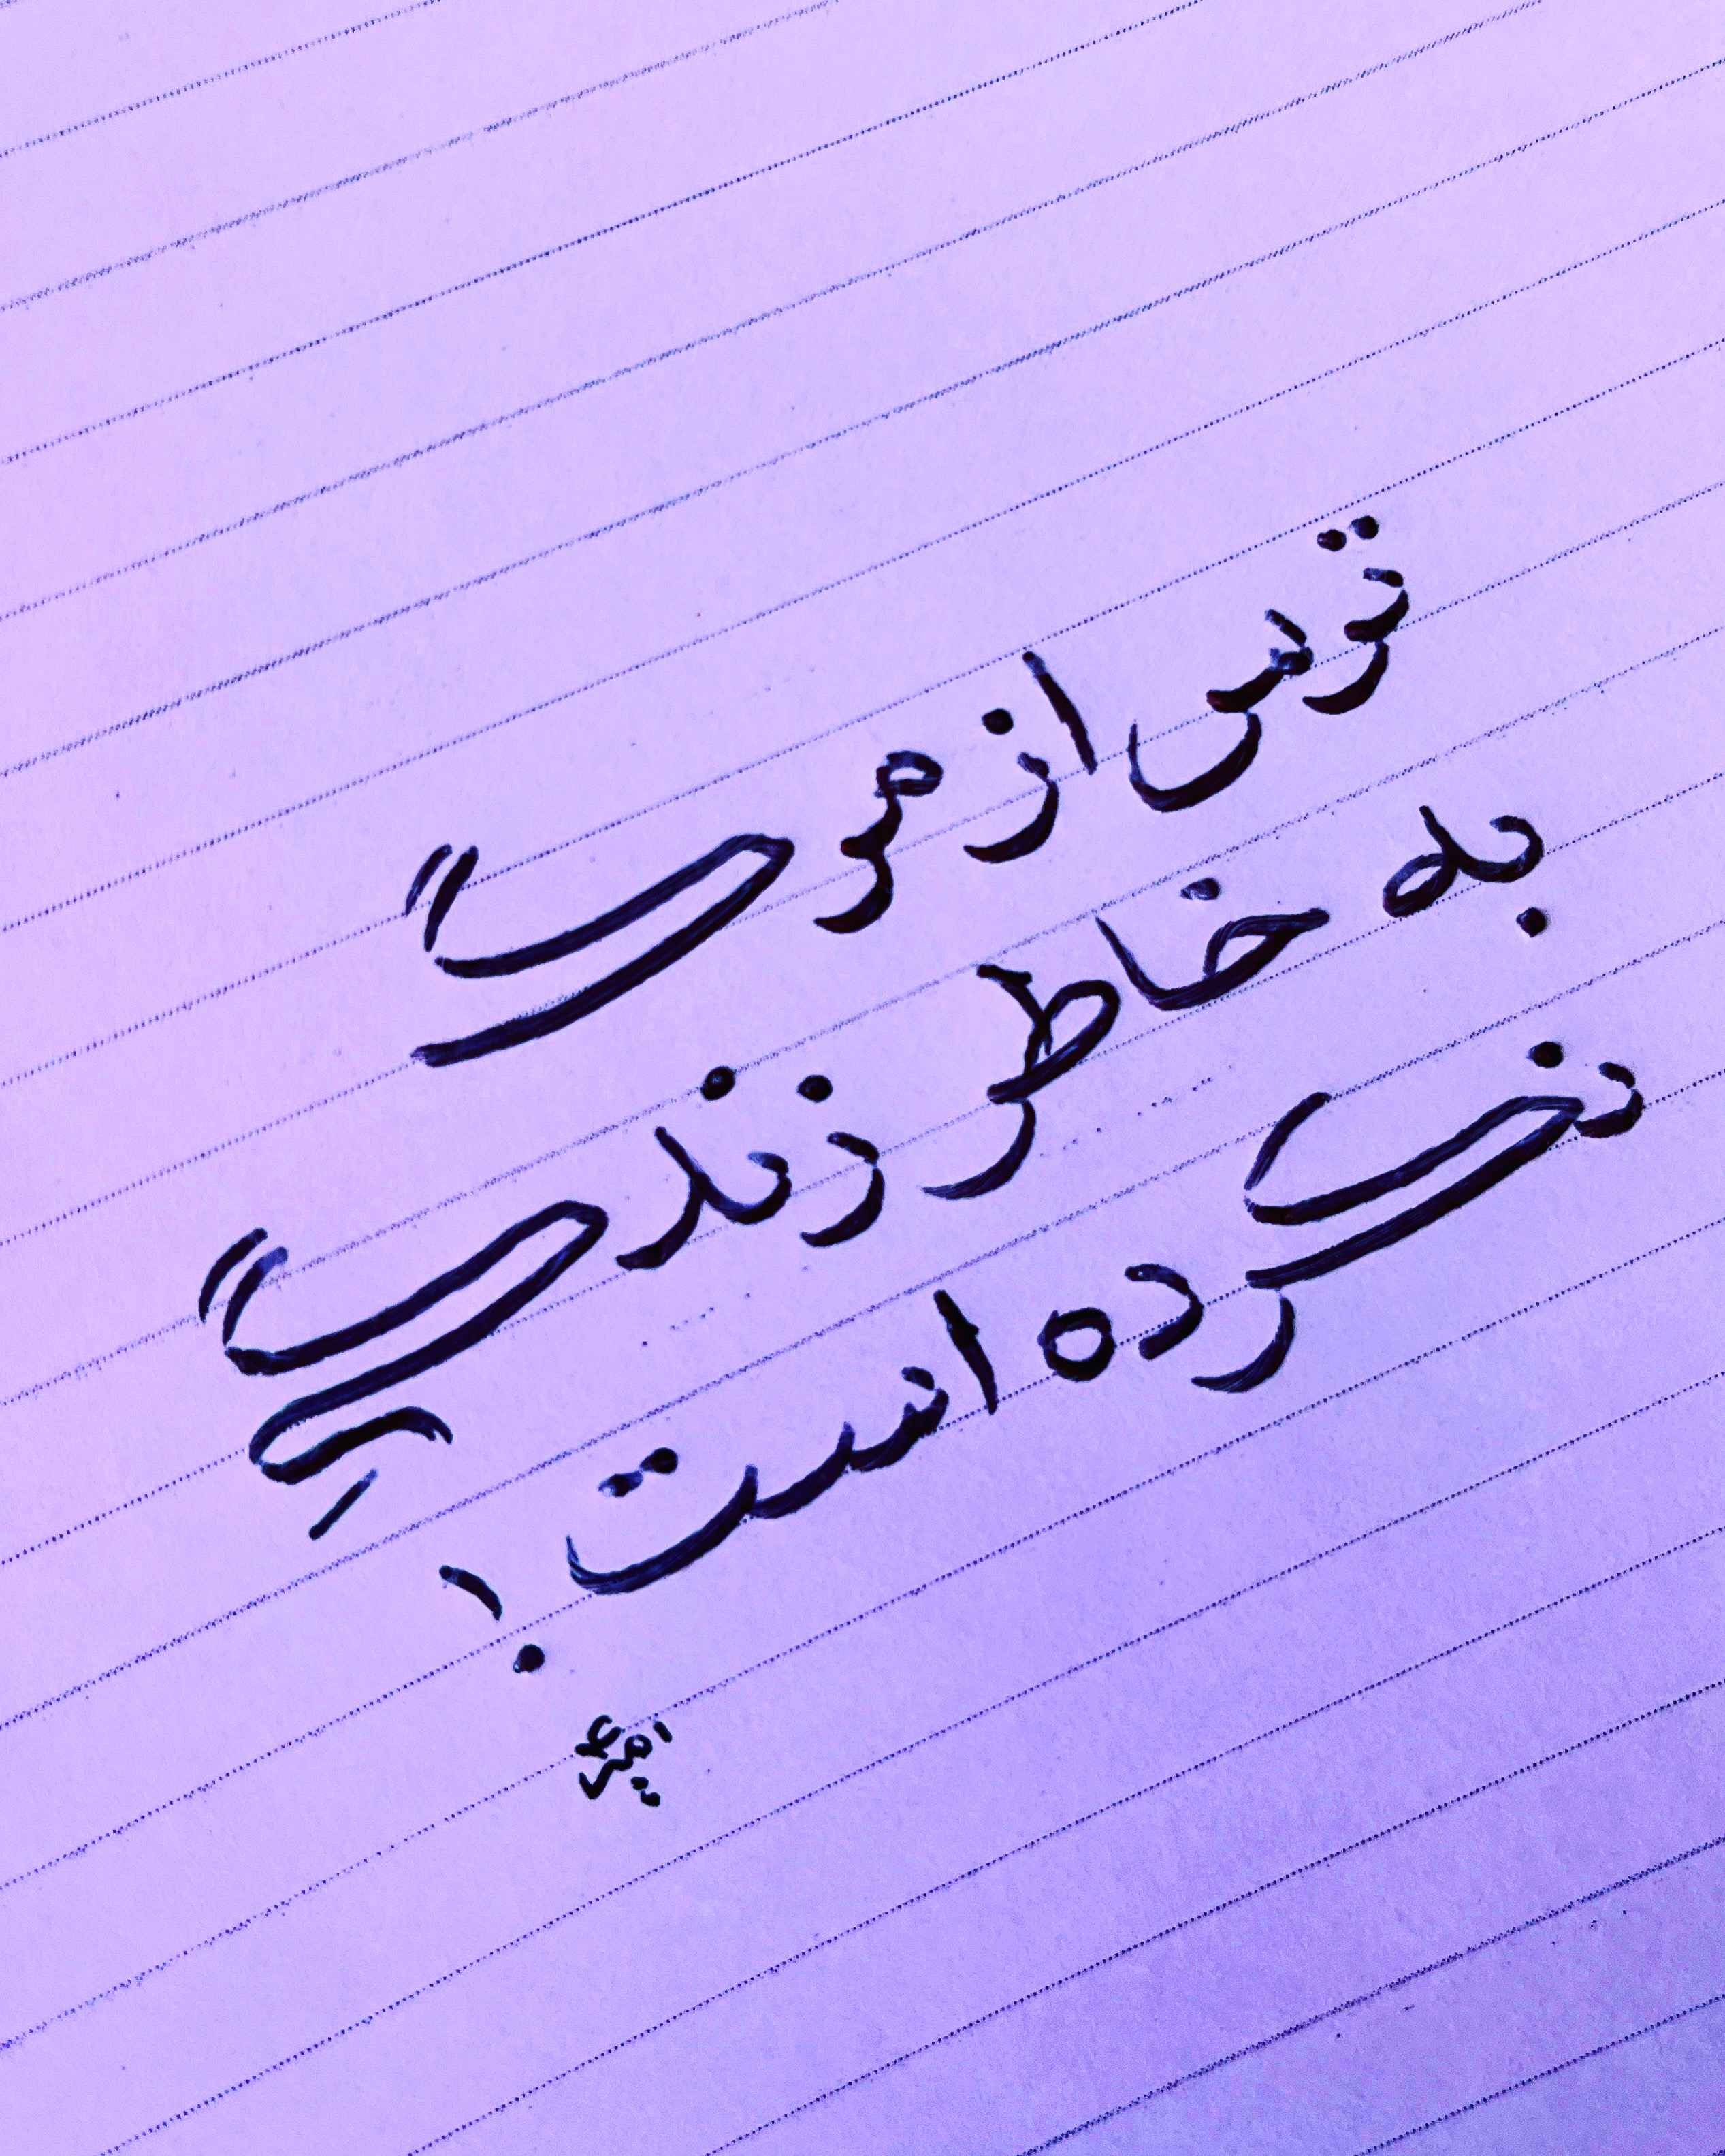 ترس از مرگ
به خاطر زندگی
نکرده است!